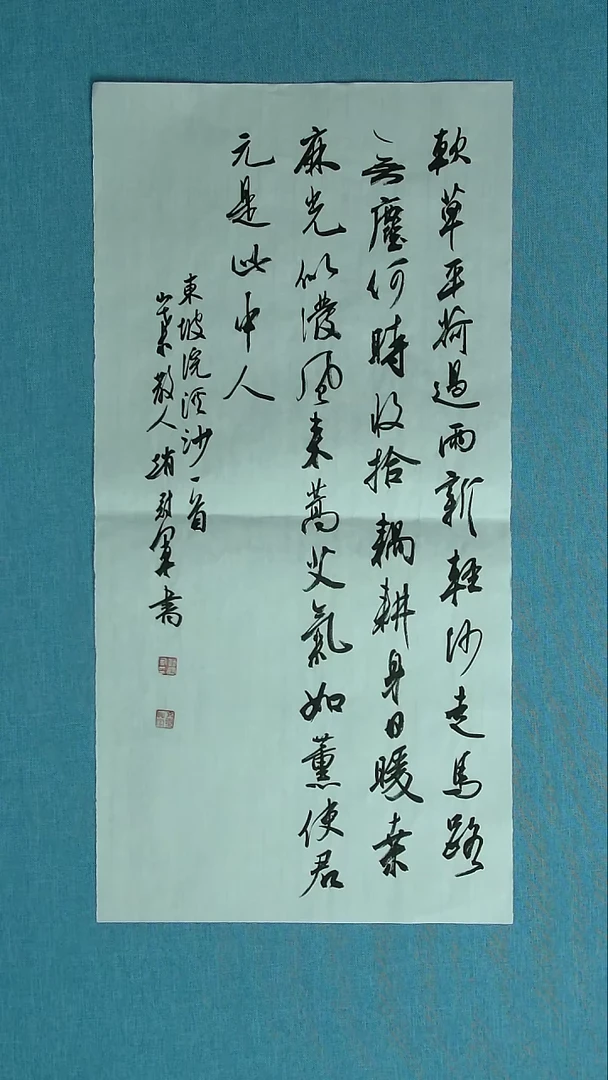 軟草平莎過雨新輕沙走馬路
無塵何時收拾耦耕身日暖桑
麻光似潑風来蒿艾氣如薰使君
元是此中人
東坡浣溪沙一首
散人趙軍書